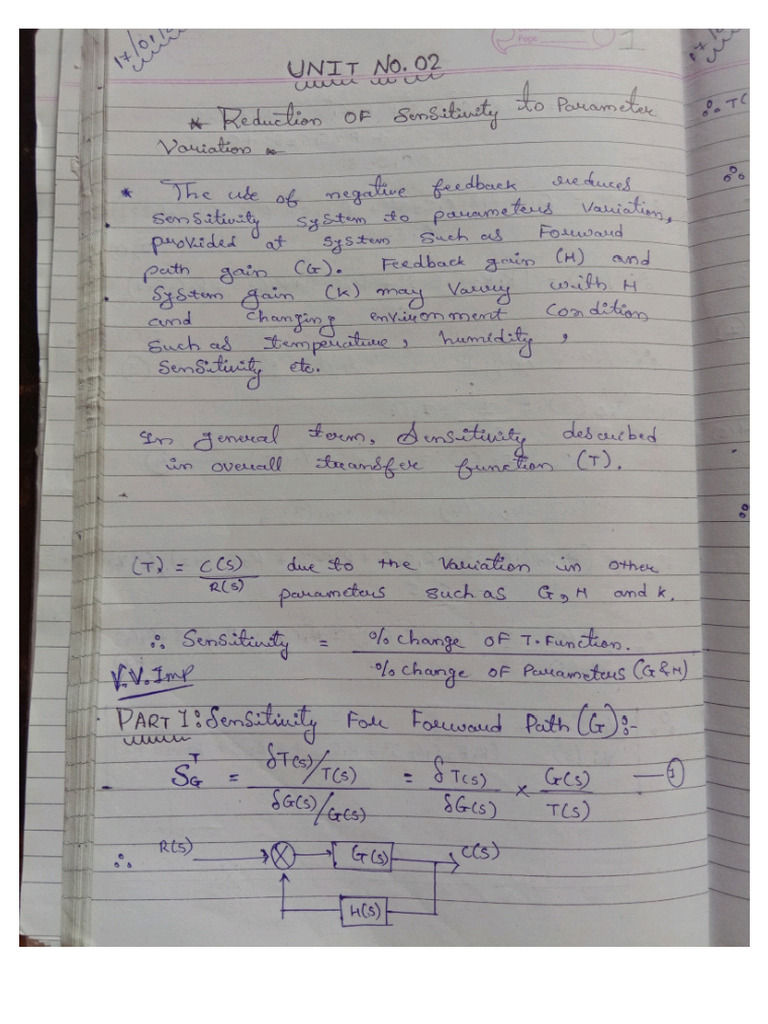 17/01/2
Page
1
17/
UNIT No. 02
* Reduction OF Sensitivity to Parameter
Variation *
* The use of negative feedback reduces
sensitivity system to parameters variation,
provided at system such as Forward
path gain (G). Feedback gain (H) and
system gain (K) may varry with H
and changing environment condition
such as temperature, humidity,
sensitivity etc.
In general term, Sensitivity described
in overall transfer function (T).
(T) = C(S) / R(S) due to the variation in other
parameters such as G, H and K.
∴ Sensitivity = % change OF T. Function. / % change OF Parameters (G & H)
V.V. Imp
PART 1: Sensitivity For Forward Path (G):-
S_G^T = δT(s)/T(s) / δG(s)/G(s) = δT(s) / δG(s) × G(s) / T(s) — ①
∴ R(s) G(s) C(s)
H(s)
∴ T(
∴